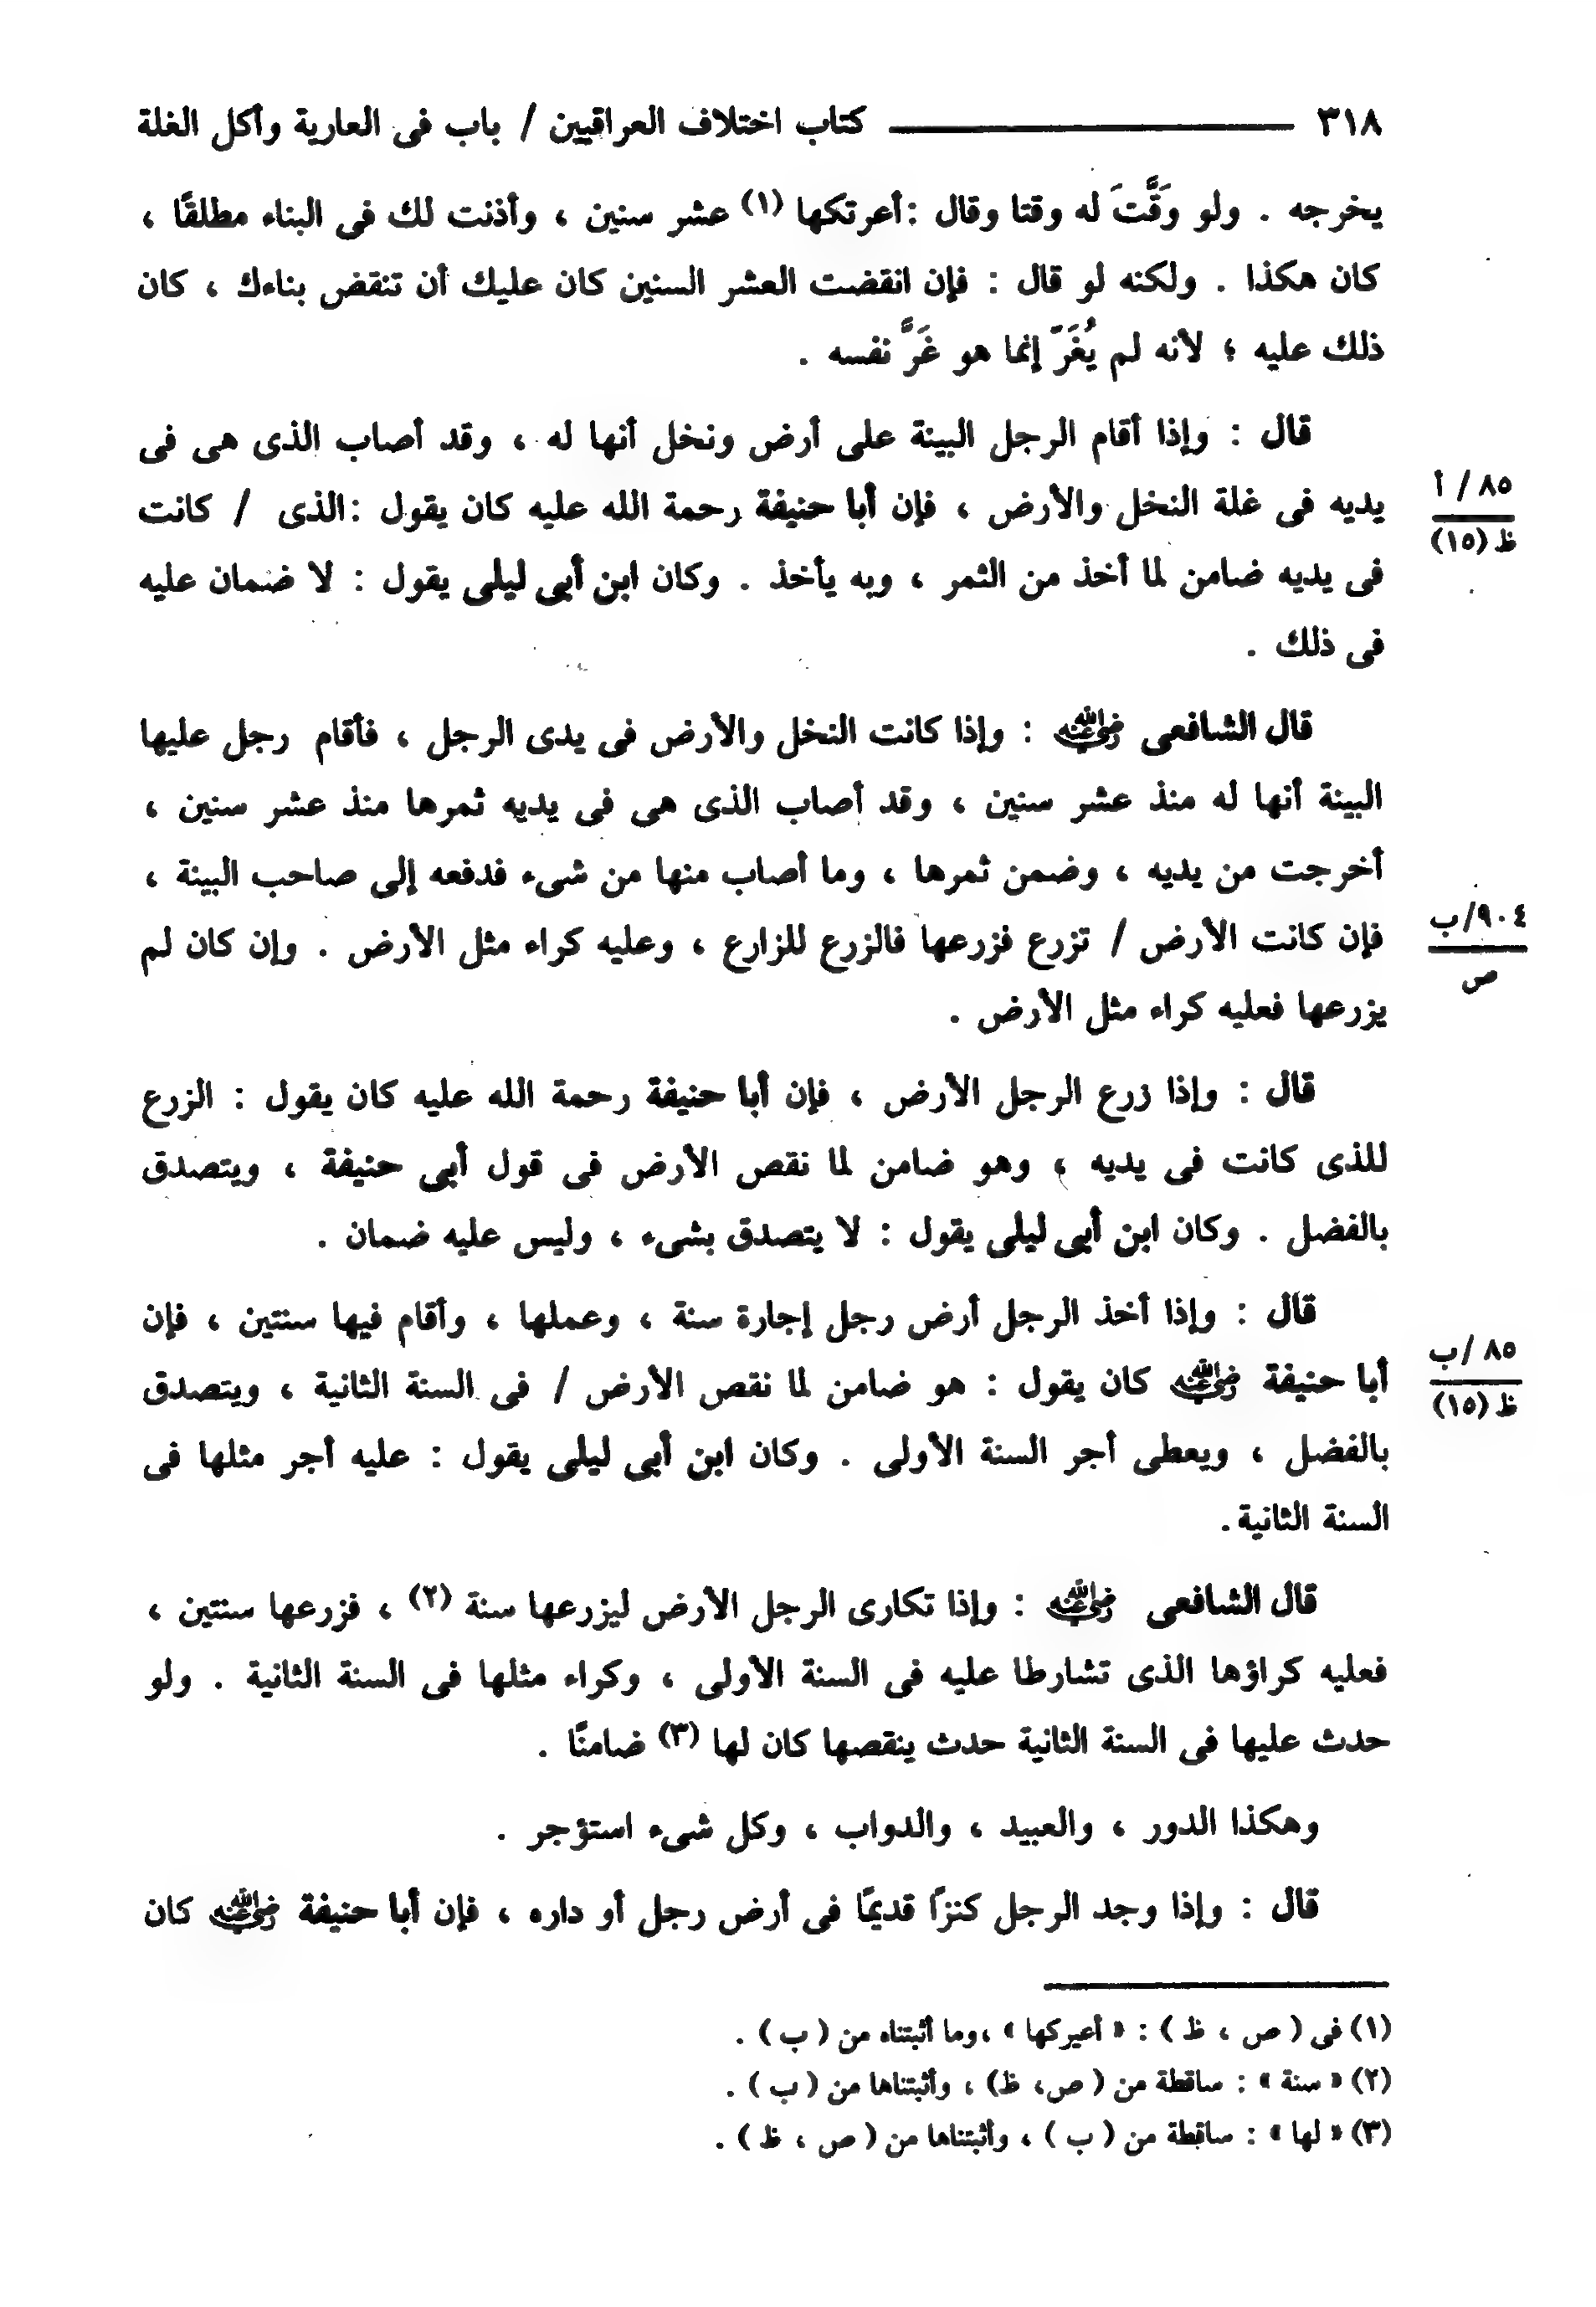 ٣١٨ ـــــــــــ كتاب اختلاف العراقيين / باب فى العارية وأكل الغلة
يخرجه . ولو وَقَّتَ له وقتا وقال :أعرتكها (١) عشر سنين ، وأذنت لك فى البناء مطلقًا ،
كان هكذا . ولكنه لو قال : فإن انقضت العشر السنين كان عليك أن تنقض بناءك ، كان
ذلك عليه ؛ لأنه لم يُغَرّ إنما هو غَرَّ نفسه .
قال : وإذا أقام الرجل البينة على أرض ونخل أنها له ، وقد أصاب الذى هى فى
٨٥/ أ
يديه فى غلة النخل والأرض ، فإن أبا حنيفة رحمة الله عليه كان يقول :الذى / كانت
ظ (١٥)
فى يديه ضامن لما أخذ من الثمر ، وبه يأخذ . وكان ابن أبى ليلى يقول : لا ضمان عليه
فى ذلك .
قال الشافعى رضي الله عنه : وإذا كانت النخل والأرض فى يدى الرجل ، فأقام رجل عليها
البينة أنها له منذ عشر سنين ، وقد أصاب الذى هى فى يديه ثمرها منذ عشر سنين ،
أخرجت من يديه ، وضمن ثمرها ، وما أصاب منها من شىء فدفعه إلى صاحب البينة ،
٩٠٤/ب
فإن كانت الأرض / تزرع فزرعها فالزرع للزارع ، وعليه كراء مثل الأرض . وإن كان لم
ص
يزرعها فعليه كراء مثل الأرض .
قال : وإذا زرع الرجل الأرض ، فإن أبا حنيفة رحمة الله عليه كان يقول : الزرع
للذى كانت فى يديه ، وهو ضامن لما نقص الأرض فى قول أبى حنيفة ، ويتصدق
بالفضل . وكان ابن أبى ليلى يقول : لا يتصدق بشىء ، وليس عليه ضمان .
قال : وإذا أخذ الرجل أرض رجل إجارة سنة ، وعملها ، وأقام فيها سنتين ، فإن
٨٥ /ب
أبا حنيفة رضي الله عنه كان يقول : هو ضامن لما نقص الأرض / فى السنة الثانية ، ويتصدق
ظ (١٥)
بالفضل ، ويعطى أجر السنة الأولى . وكان ابن أبى ليلى يقول : عليه أجر مثلها فى
السنة الثانية.
قال الشافعى رضي الله عنه : وإذا تكارى الرجل الأرض ليزرعها سنة (٢) ، فزرعها سنتين ،
فعليه كراؤها الذى تشارطا عليه فى السنة الأولى ، وكراء مثلها فى السنة الثانية . ولو
حدث عليها فى السنة الثانية حدث ينقصها كان لها (٣) ضامنًا .
وهكذا الدور ، والعبيد ، والدواب ، وكل شىء استؤجر .
قال : وإذا وجد الرجل كنزًا قديمًا فى أرض رجل أو داره ، فإن أبا حنيفة رضي الله عنه كان
(١) فى ( ص ، ظ ) : « أعيركها » ،وما أثبتناه من ( ب ) .
(٢) « سنة » : ساقطة من ( ص، ظ) ، وأثبتناها من ( ب ) .
(٣) « لها » : ساقطة من ( ب ) ، وأثبتناها من ( ص ، ظ ) .